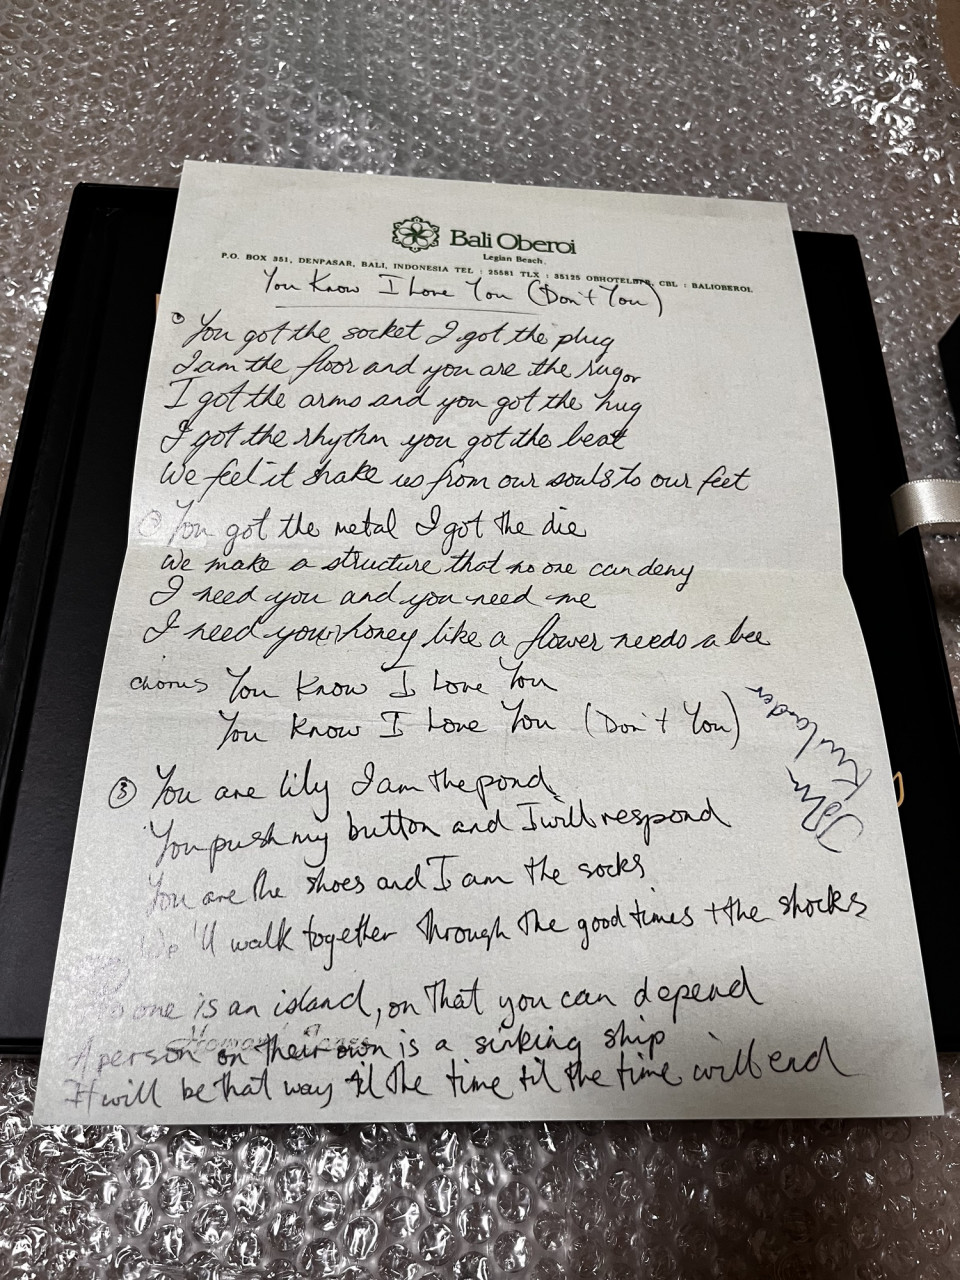 Bali Oberoi
Legian Beach.
P.O. BOX 351, DENPASAR, BALI, INDONESIA TEL : 25581 TLX : 35125 OBHOTELDPR, CBL : BALIOBEROI.
You Know I Love You (Don't You)
You got the socket I got the plug
I am the floor and you are the rug or
I got the arms and you got the hug
I got the rhythm you got the beat
We feel it shake us from our souls to our feet
You got the metal I got the die
We make a structure that no one can deny
I need you and you need me
I need your honey like a flower needs a bee
chorus You Know I Love You
You Know I Love You (Don't You)
John
③ You are lily I am the pond
You push my button and I will respond
You are the shoes and I am the socks
We'll walk together through the good times + the shocks
one is an island, on that you can depend
A person on their own is a sinking ship
It will be that way til the time til the time will end
Howard Jones